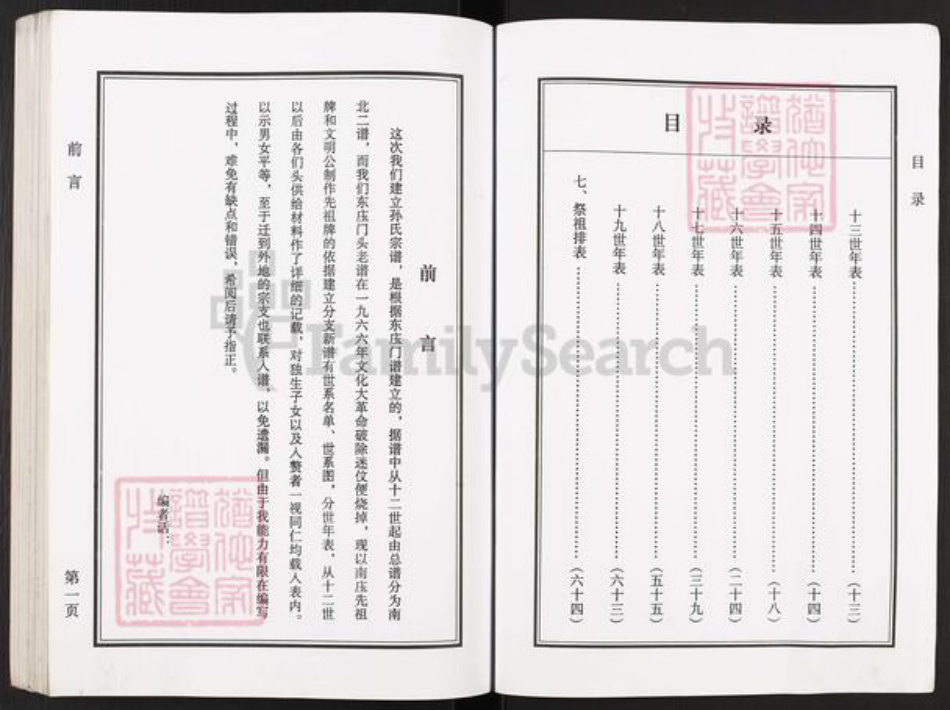 目录
目 录
十三世年表………(十三)
十四世年表………(十四)
十五世年表………(十八)
十六世年表………(二十四)
十七世年表………(三十九)
十八世年表………(五十五)
十九世年表………(六十三)
七、祭祖排表………(六十四)
前 言
这次我们建立孙氏宗谱，是根据东庄门谱建立的，据谱中从十二世起由总谱分为南
北二谱，而我们东庄门头老谱在一九六六年文化大革命破除迷仪便烧掉，现以南庄先祖
牌和文明公制作先祖牌的依据建立分支新谱有世系名单、世系图，分世年表，从十二世
以后由各们头供给材料作了详细的记载，对独生子女以及人赘者一视同仁均载人表内。
以示男女平等，至于迁到外地的宗支也联系人谱，以免遗漏。但由于我能力有限在编写
过程中，难免有缺点和错误，希阅后请予指正。
编者话：
前言
第一页
FamilySearch